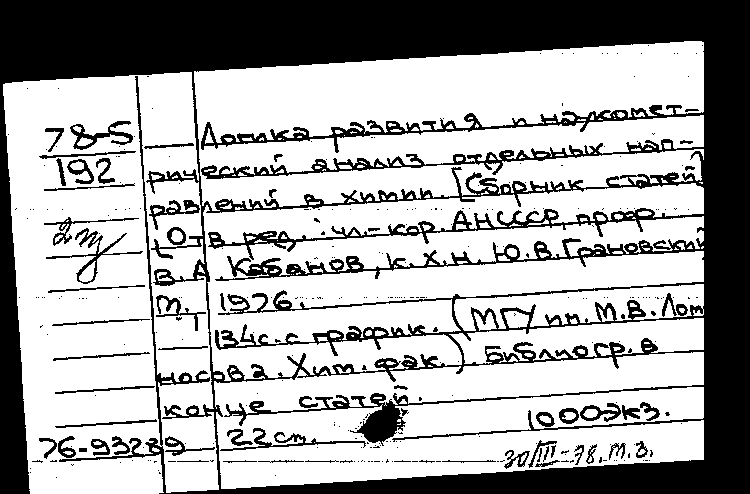 78-5 Логика развития и наукомет-
192 рический анализ отдельных нап-
равлений в химии. [Сборник статей]
[Отв. ред.: чл.-кор. АН СССР, проф.
В.А. Кабанов, к.х.н. Ю.В. Грановский]
М., 1976.
134с. с график. (МГУ им. М.В. Ломо
носова. Хим. фак.). Библиогр. в
конце статей.
76-93289 22 см. 1000экз.
30/III-78. т.з.